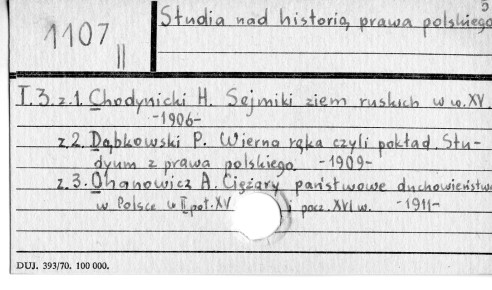 5
1107
II
Studia nad historią prawa polskiego
T. 3. z. 1. Chodynicki H. Sejmiki ziem ruskich w w. XV.
-1906-
z. 2. Dąbkowski P. Wierna ręka czyli pokład. Stu-
dyum z prawa polskiego. -1909-
z. 3. Ohanowicz A. Ciężary państwowe duchowieństwa
w Polsce w II poł. XV i pocz. XVI w. -1911-
DUJ. 393/70. 100 000.